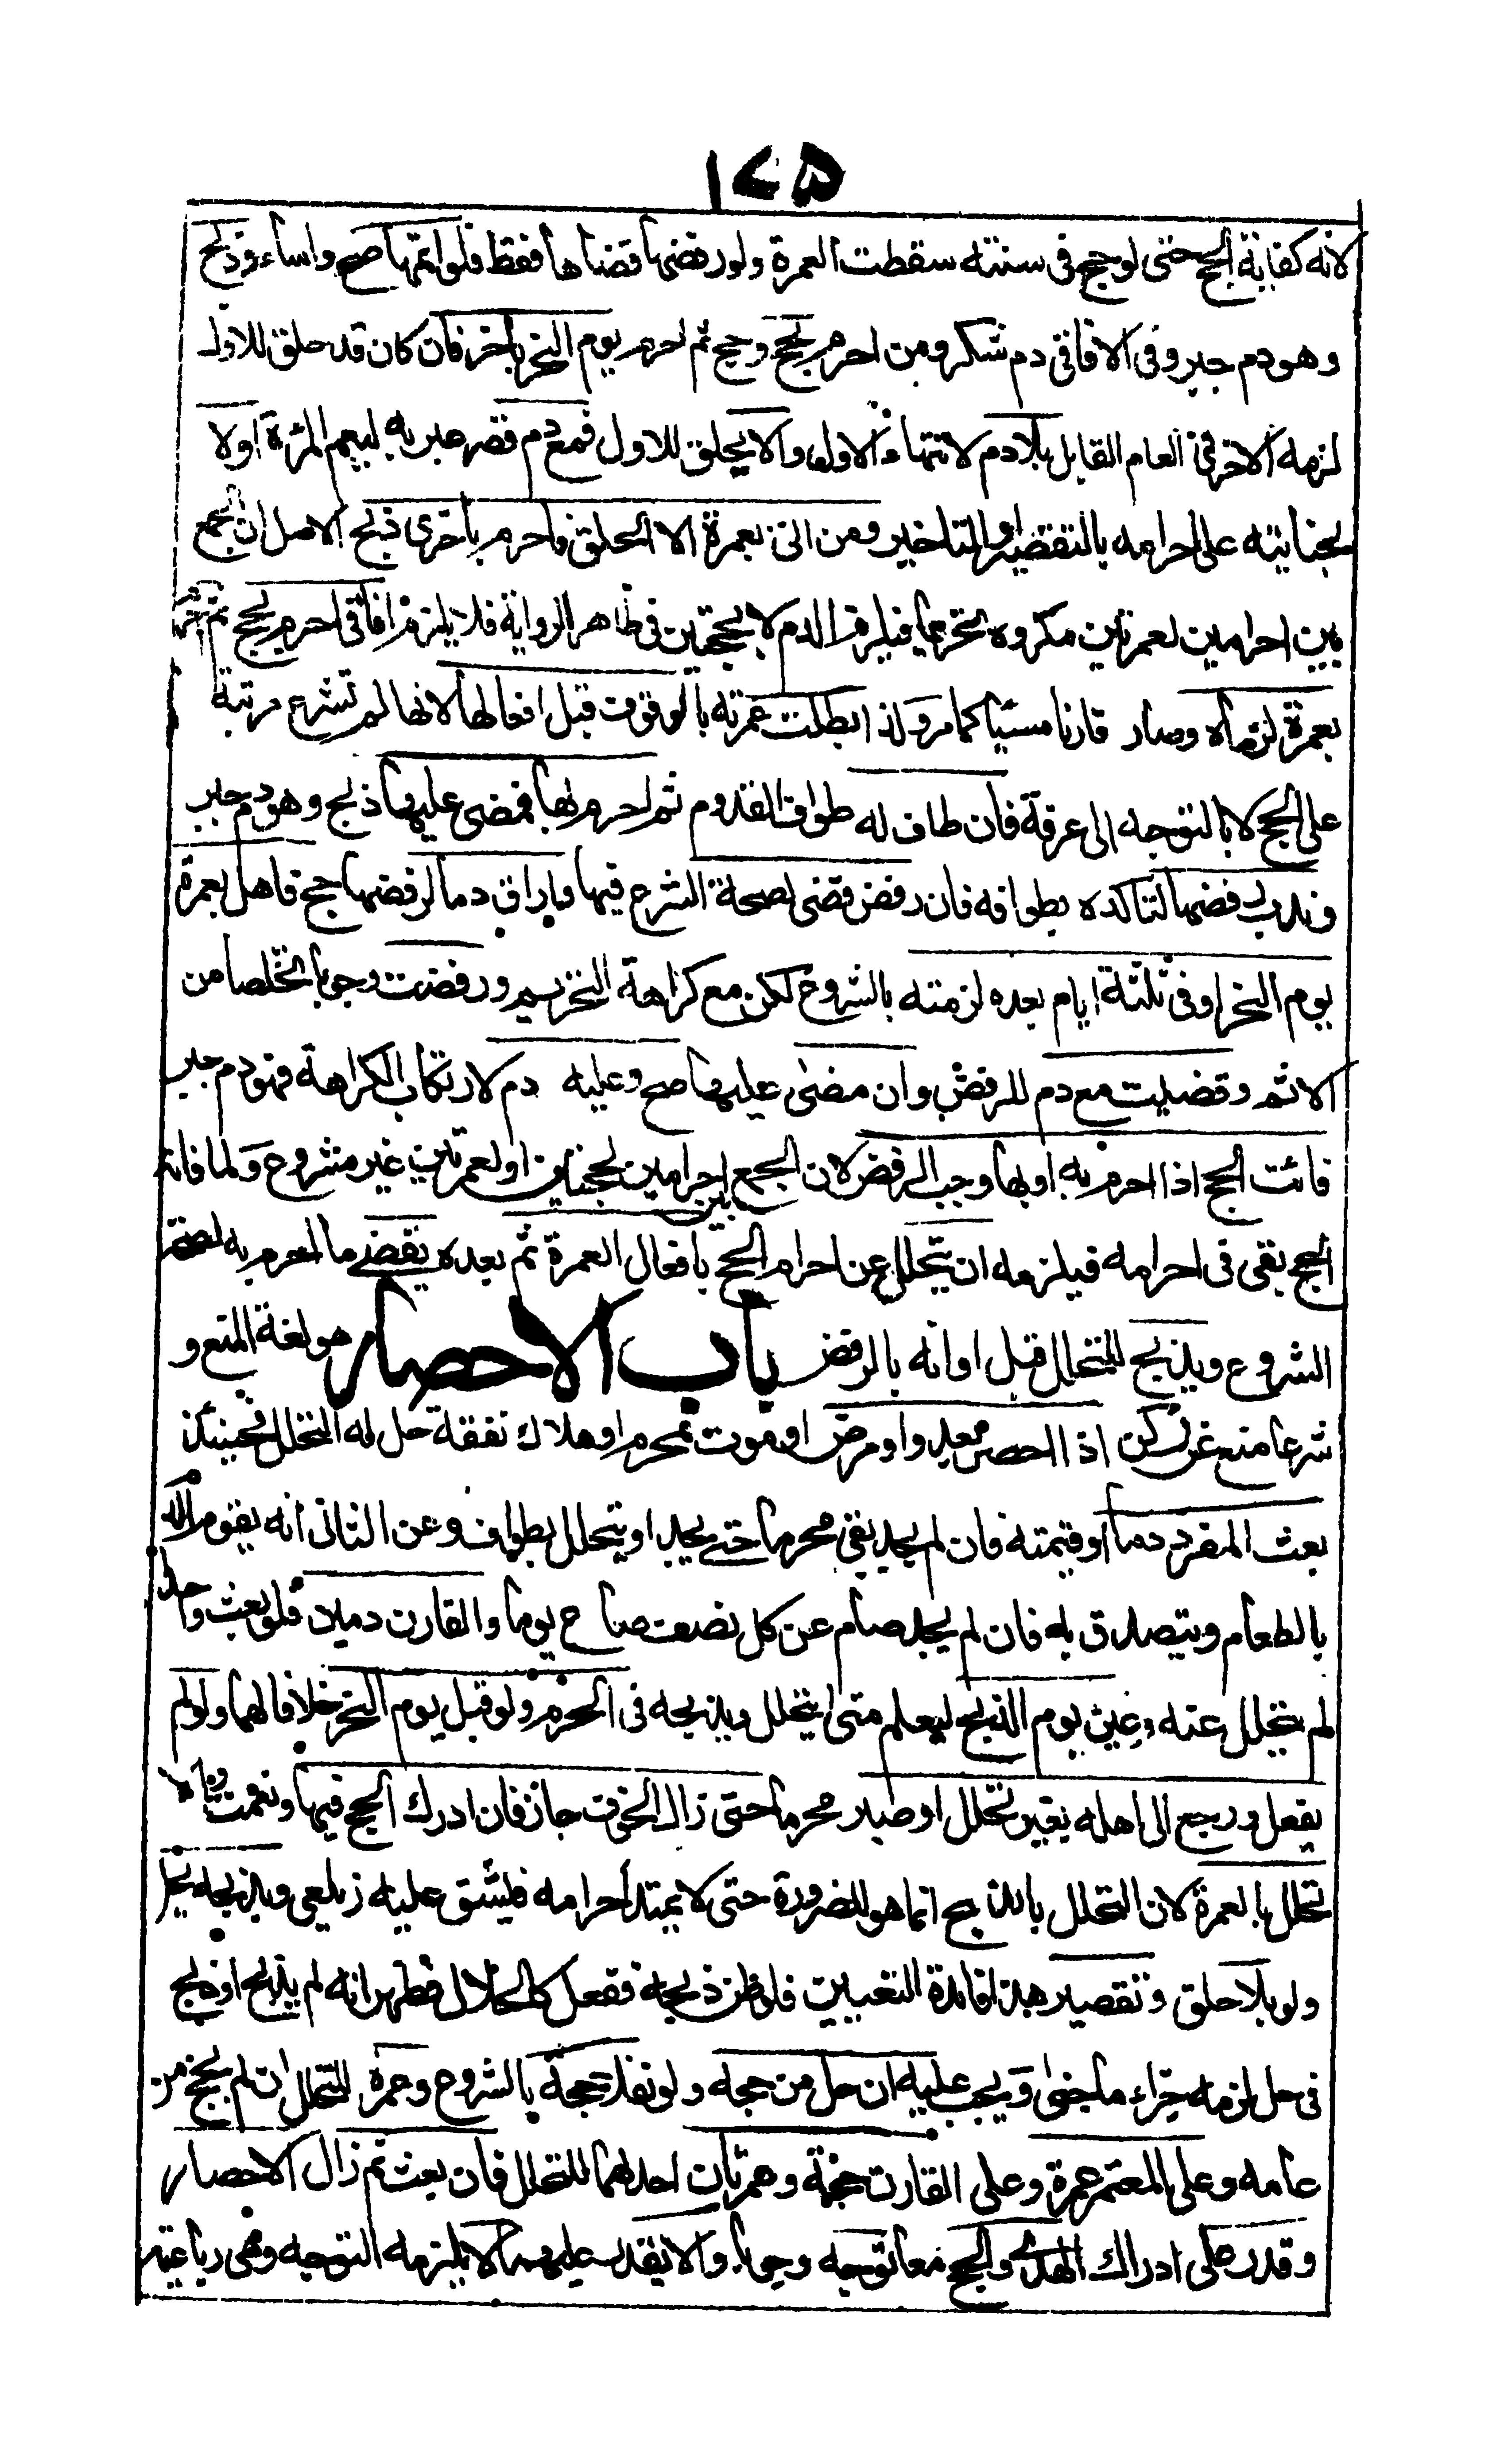 ١٢٥
لانه كفاية الحج حتى لو حج فى سنته سقطت العمرة ولو رفضها قضاها فقط فلو اتمها صح واساء وذبح
وهو دم جبر وفى الافاقى دم شكر ومن احرم بحج وحج ثم احرم يوم النحر باخر فان كان قد حلق للاول
لزمه الاخر فى العام القابل بلا دم لانتهاء الاول والا يحلق للاول فمع دم قصر عبر به ليعم المرءة اولا
لجنايته على احرامه بالتقصير او التاخير ومن اتى بعمرة الا الحلق فاحرم باخرى ذبح الاصل ان الجمع
بين احرامين لعمرتين مكروه تحريما فيلزم الدم لا بحجتين فى ظاهر الرواية فلا يلزم افاقى احرم بحج ثم احرم
بعمرة لزماه وصار قارنا مسيئا كما مر ولذا بطلت عمرته بالوقوف قبل افعالها لانها لم تشرع مرتبة
على الحج لا بالتوجه الى عرفة فان طاف له طواف القدوم ثم احرم بها فمضى عليهما ذبح وهو دم جبر
وندب رفضها لتاكده بطوافه فان رفض قضى لصحة الشرع فيها واراق دما لرفضها حج فاهل بعمرة
يوم النحر او فى ثلثة ايام بعده لزمته بالشروع لكن مع كراهة التحريم ورفضت وجوبا تخلصا من
الاثم وقضيت مع دم للرفض وان مضى عليهما صح وعليه دم لارتكاب الكراهة فهو دم جبر
فائت الحج اذا احرم به او بها وجب الرفض لان الجمع بين احرامين لحجتين او لعمرتين غير مشروع ولما فاته
الحج بقى فى احرامه فيلزمه ان يتحلل عن احرام الحج بافعال العمرة ثم بعده يقضى ما احرم به لصحة
الشروع ويذبح للتحلل قبل اوانه بالرفض باب الاحصار هو لغة المنع و
شرعا منع عن ركن اذا احصر بعدو او مرض او موت محرم او هلاك نفقة حل له التحلل فحينئذ
بعث المفرد دما او قيمته فان لم يجد بقى محرما حتى يجد او يتحلل بطواف وعن الثانى انه يقوم الدم
بالطعام ويتصدق به فان لم يجد صام عن كل نصف صاع يوما والقارن دمين فلو بعث واحدا
لم يتحلل عنه وعين يوم الذبح ليعلم متى يتحلل ويذبحه فى الحرم ولو قبل يوم النحر خلافا لهما ولو لم
يفعل ورجع الى اهله بغير تحلل او صبر محرما حتى زال الخوف جاز فان ادرك الحج فبها ونعمت والا
تحلل بالعمرة لان التحلل بالذبح انما هو للضرورة حتى لا يمتد احرامه فيشق عليه زيلعى وبذبحه يحل
ولو بلا حلق وتقصير هذا فائدة التعيين فلو ظن ذبحه ففعل كالحلال فظهر انه لم يذبح او ذبح
فى حل لزمه جزاء ما جنى ويجب عليه ان حل من حجه ولو نفلا حجة بالشروع وعمرة للتحلل ان لم يحج من
عامه وعلى المعتمر عمرة وعلى القارن حجة وعمرتان احداهما للتحلل فان بعث ثم زال الاحصار
وقدر على ادراك الهدى والحج معا توجه وجوبا والا يقدر عليهما لا يلزمه التوجه وهى رباعية